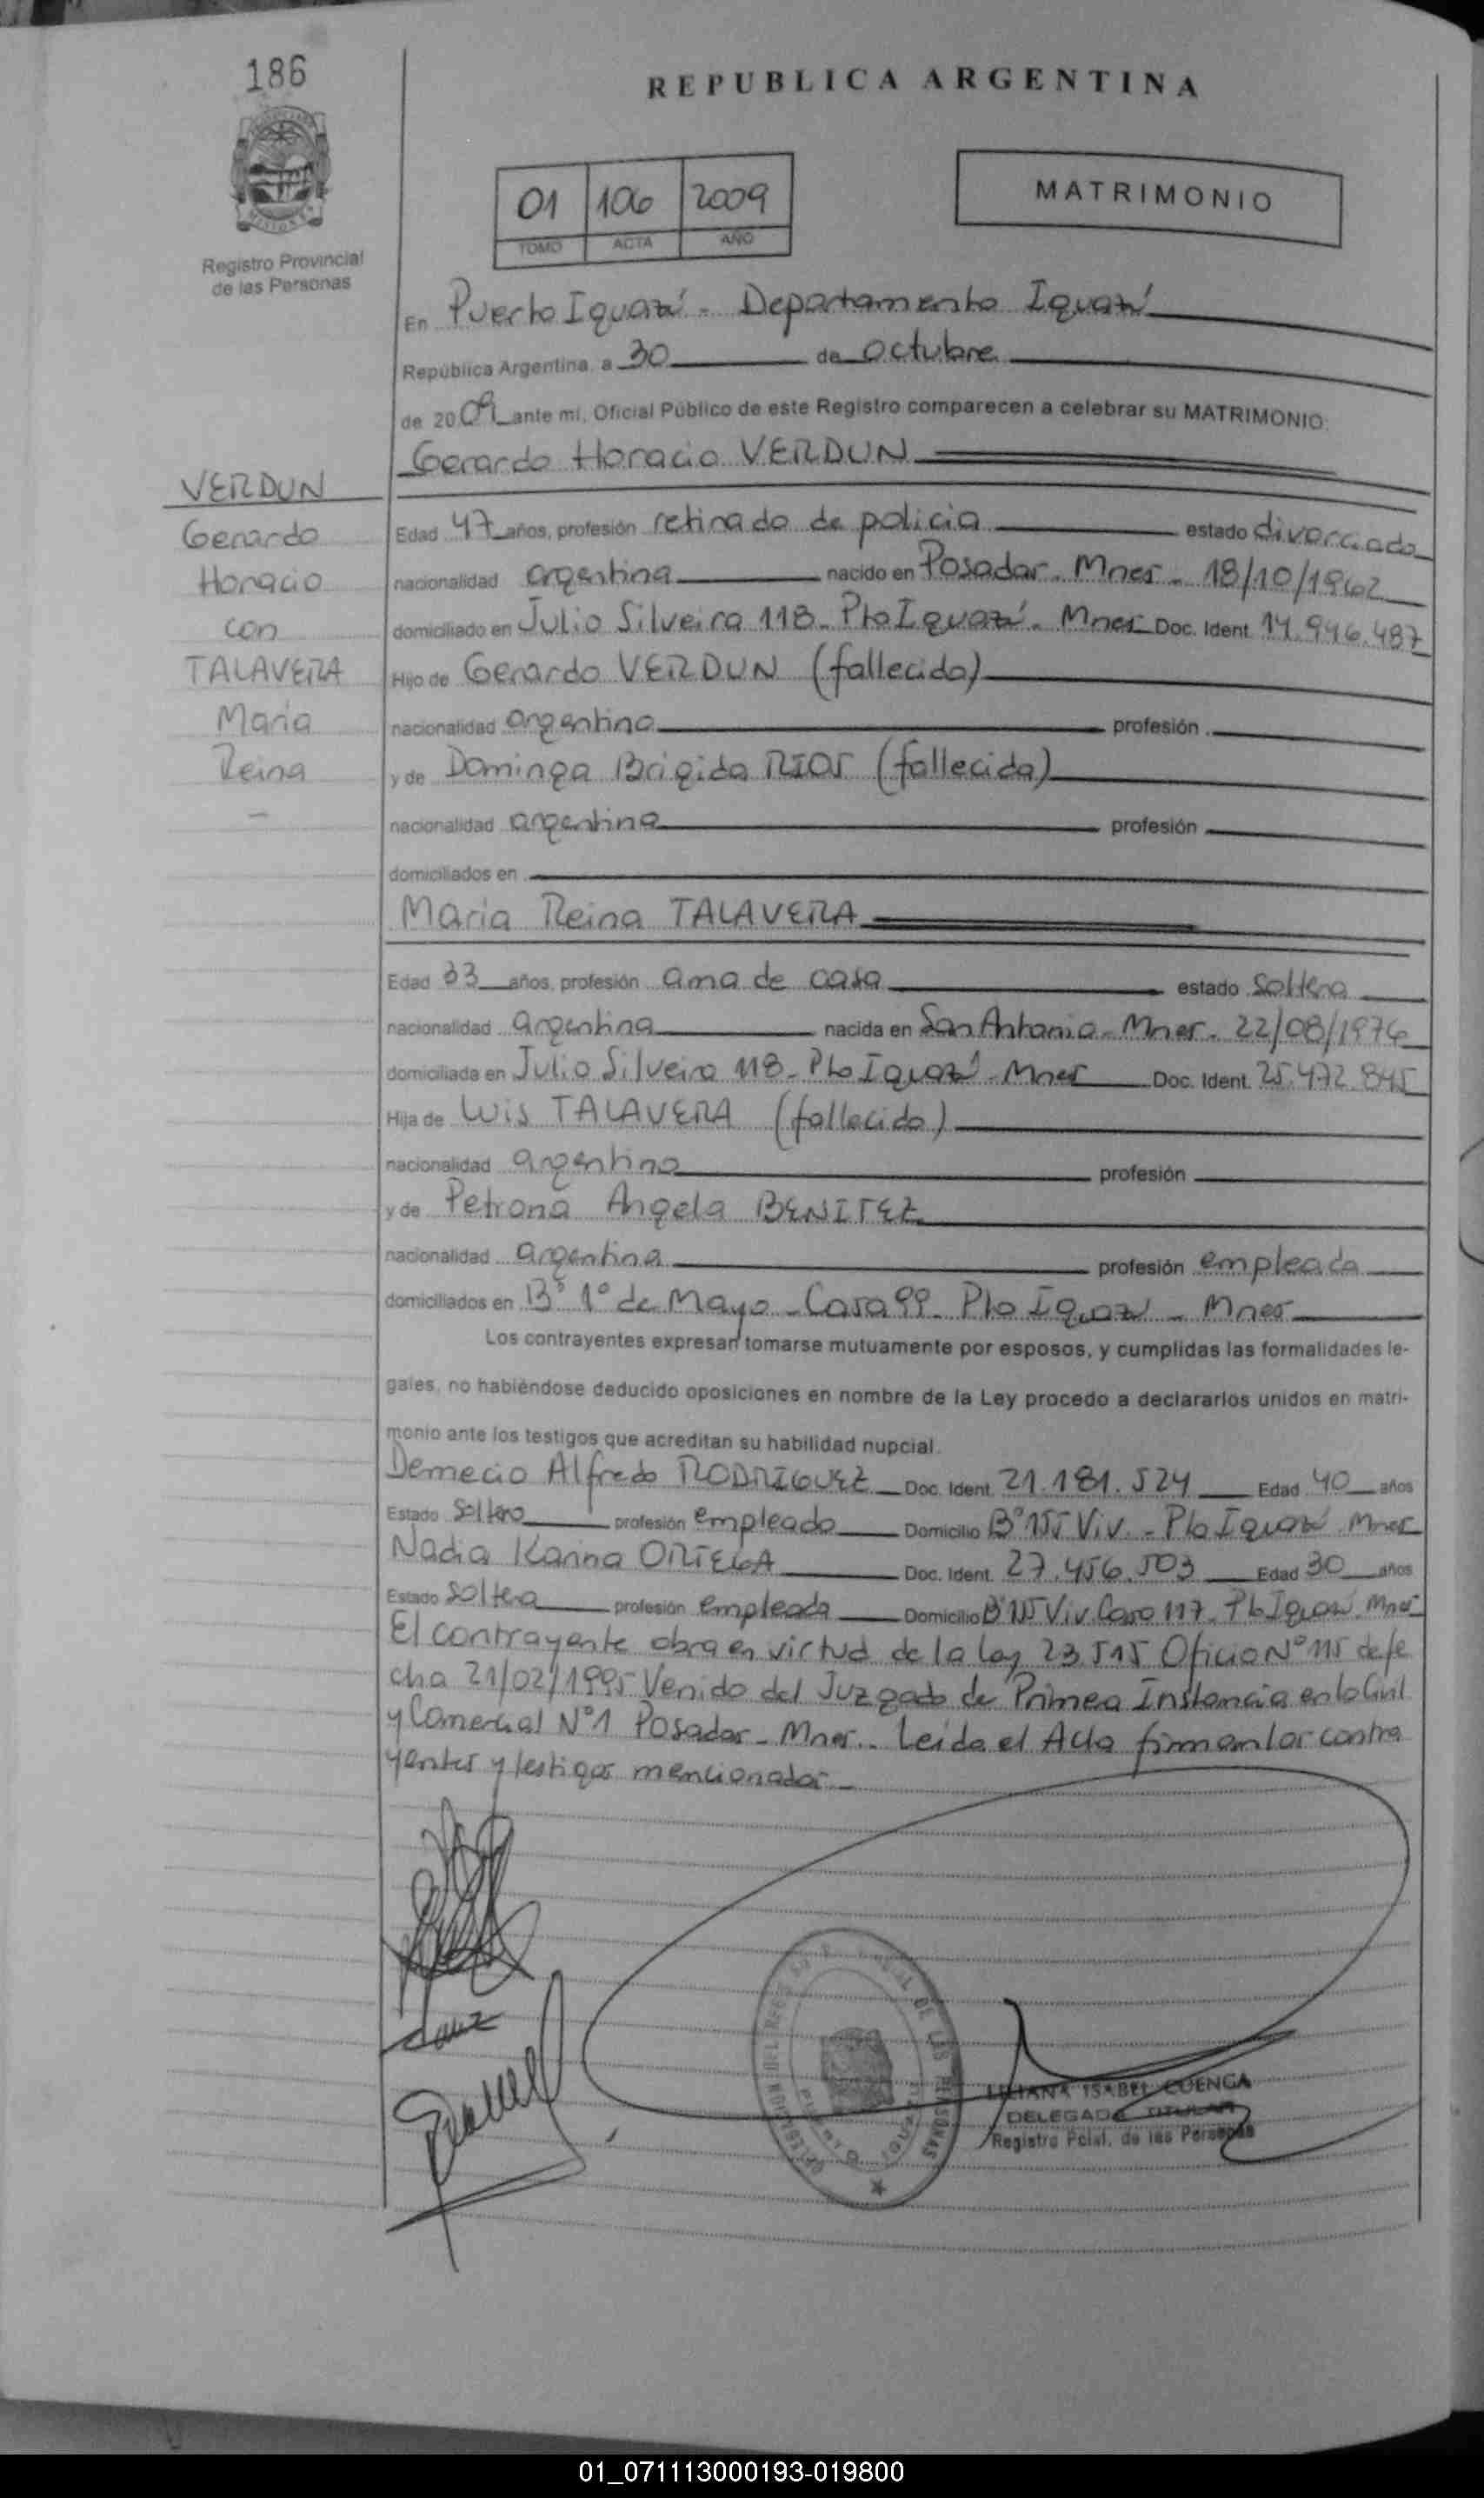 186
REPUBLICA ARGENTINA
01 106 2009
TOMO ACTA AÑO
MATRIMONIO
Registro Provincial
de las Personas
En Puerto Iguazú - Departamento Iguazú
República Argentina, a 30 de Octubre
de 2009 ante mi, Oficial Público de este Registro comparecen a celebrar su MATRIMONIO:
Gerardo Horacio VERDUN
VERDUN
Gerardo
Horacio
con
TALAVERA
Maria
Reina
Edad 47 años, profesión retirado de policia estado divorciado
nacionalidad argentina nacido en Posadas - Mnes - 18/10/1962
domiciliado en Julio Silveira 118 - Pto Iguazú - Mnes Doc. Ident. 14.946.487
Hijo de Gerardo VERDUN (fallecido)
nacionalidad argentino profesión
y de Dominga Brigida RIOS (fallecida)
nacionalidad argentina profesión
domiciliados en
Maria Reina TALAVERA
Edad 33 años, profesión ama de casa estado soltera
nacionalidad argentina nacida en San Antonio - Mnes - 22/08/1976
domiciliada en Julio Silveira 118 - Pto Iguazú - Mnes Doc. Ident. 25.472.845
Hija de Luis TALAVERA (fallecido)
nacionalidad argentino profesión
y de Petrona Angela BENITEZ
nacionalidad argentina profesión empleada
domiciliados en B° 1° de Mayo - Casa 99 - Pto Iguazú - Mnes
Los contrayentes expresan tomarse mutuamente por esposos, y cumplidas las formalidades le-
gales, no habiéndose deducido oposiciones en nombre de la Ley procedo a declararlos unidos en matri-
monio ante los testigos que acreditan su habilidad nupcial.
Demecio Alfredo RODRIGUEZ Doc. Ident. 21.181.524 Edad 40 años
Estado soltero profesión empleado Domicilio B° 155 Viv. - Pto Iguazú Mnes
Nadia Karina ORTEGA Doc. Ident. 27.456.503 Edad 30 años
Estado soltera profesión empleada Domicilio B° 155 Viv. Casa 117 - Pto Iguazú. Mnes
El contrayente obra en virtud de la ley 23.515 Oficio N° 115 de fe
cha 21/02/1995 Venido del Juzgado de Primera Instancia en lo Civil
y Comercial N° 1 Posadas - Mnes.. Leída el Acta firman los contra
yentes y testigos mencionados
LILIANA ISABEL CUENCA
DELEGADA TITULAR
Registro Pcial. de las Personas
01_071113000193-019800